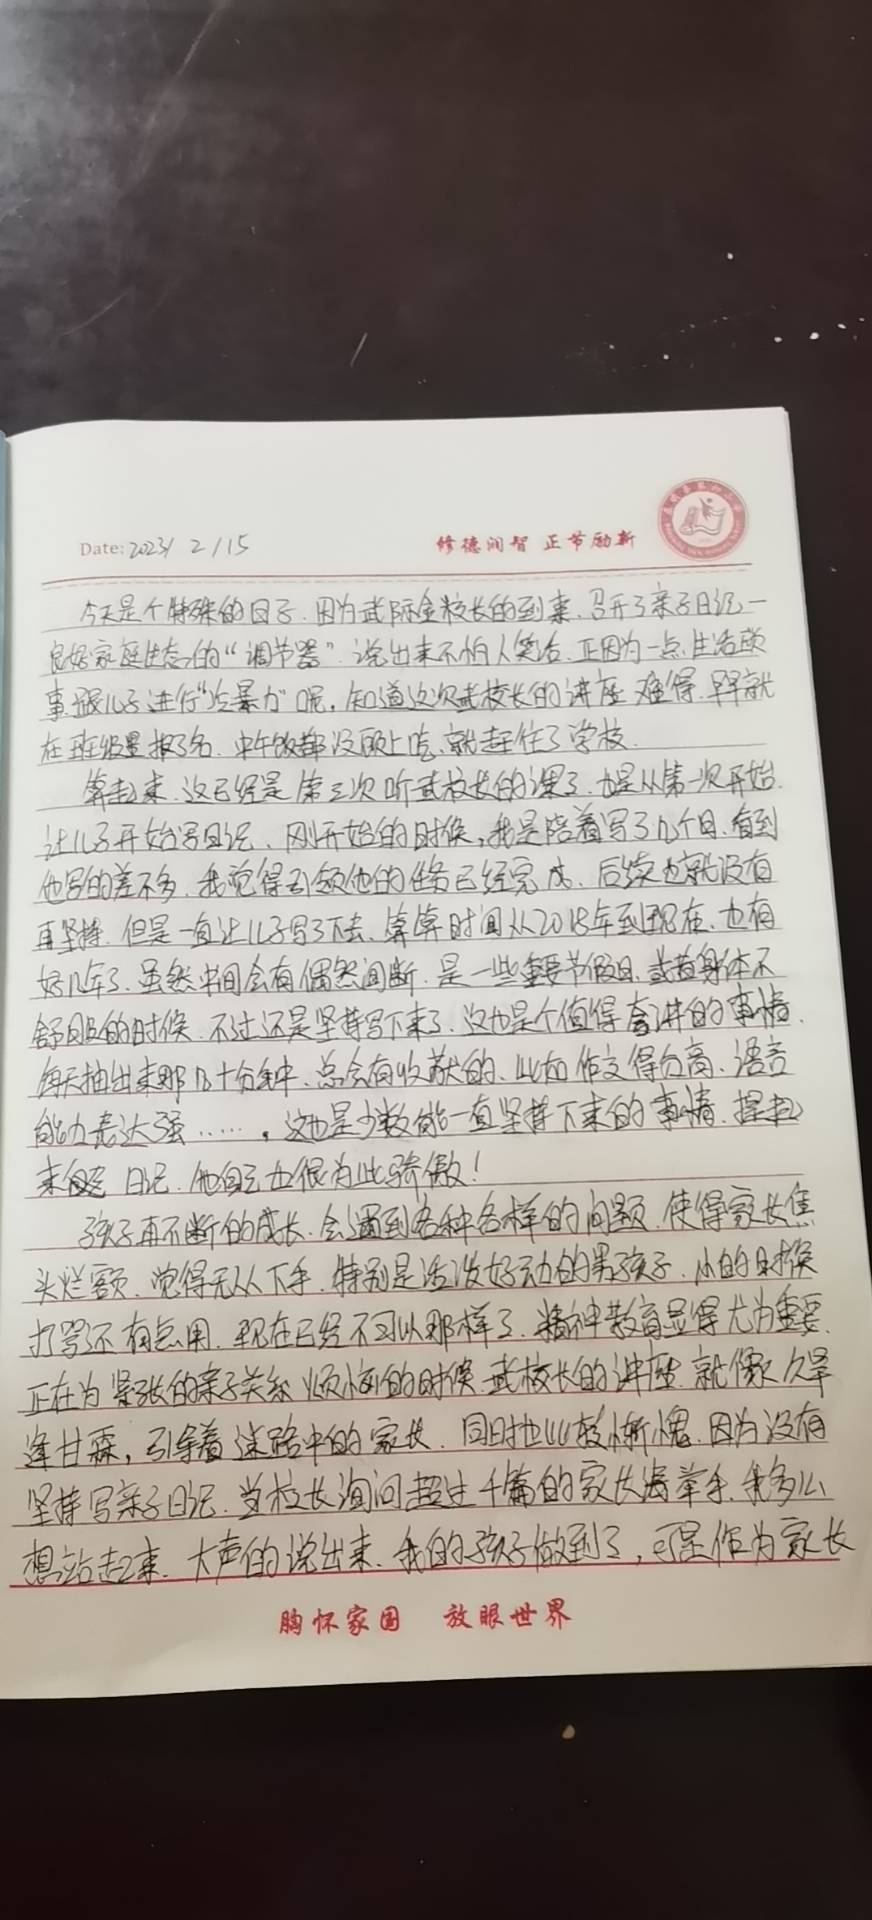 Date: 2023/ 2/15
修德润智 正节励新
今天是个特殊的日子.因为武际金校长的到来.召开了亲子日记—
良好家庭生态的“调节器”.说出来不怕人笑话.正因为一点生活琐
事跟儿子进行“冷暴力”呢,知道这次武校长的讲座难得.早早就
在班级里报了名.中午饭都没顾上吃.就赶往了学校.
算起来.这已经是第三次听武校长的课了.也是从第一次开始.
让儿子开始写日记、刚开始的时候,我是陪着写了几个月.看到
他写的差不多.我觉得引领他的任务已经完成.后续也就没有
再坚持.但是一直让儿子写了下去.算算时间从2018年到现在.也有
好几年了.虽然中间会有偶然间断.是一些重要节假日.或者身体不
舒服的时候.不过还是坚持写下来了.这也是个值得讲的事情.
每天抽出来那几十分钟.总会有收获的.比如作文得分高、语言
能力表达强……,这也是少数能一直坚持下来的事情.提起
来日记.他自己也很为此骄傲!
孩子再不断的成长.会遇到各种各样的问题.使得家长焦
头烂额.觉得无从下手.特别是活泼好动的男孩子.小的时候
打骂还有点用.现在已经不可以那样了.精神教育显得尤为重要.
正在为紧张的亲子关系烦恼的时候.武校长的讲座.就像久旱
逢甘霖,引导着迷路中的家长.同时也比较惭愧.因为没有
坚持写亲子日记.当校长询问超过千篇的家长请举手.我多么
想站起来.大声的说出来.我的孩子做到了,可是作为家长
胸怀家国 放眼世界